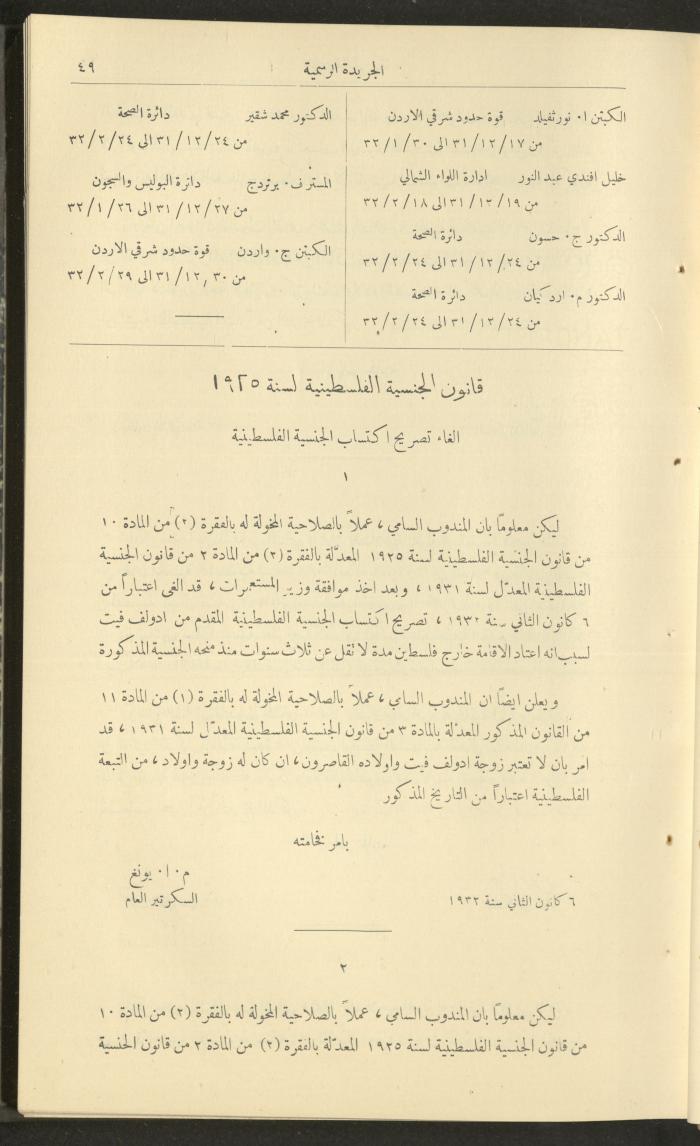 الجريدة الرسمية
٤٩
الكبتن ا٠ نورثفيلد قوة حدود شرقي الاردن
من ٣١/١٢/١٧ الى ٣٢/١/٣٠
خليل افندي عبد النور ادارة اللواء الشمالي
من ٣١/١٢/١٩ الى ٣٢/٢/١٨
الدكتور ج٠ حسون دائرة الصحة
من ٣١/١٢/٢٤ الى ٣٢/٢/٢٤
الدكتور م٠ اردكيان دائرة الصحة
من ٣١/١٢/٢٤ الى ٣٢/٢/٢٤
الدكتور محمد شقير دائرة الصحة
من ٣١/١٢/٢٤ الى ٣٢/٢/٢٤
المستر ف٠ برتردج دائرة البوليس والسجون
من ٣١/١٢/٢٧ الى ٣٢/١/٢٦
الكبتن ج٠ واردن قوة حدود شرقي الاردن
من ٣١/١٢/٣٠ الى ٣٢/٢/٢٩
قانون الجنسية الفلسطينية لسنة ١٩٢٥
الغاء تصريح اكتساب الجنسية الفلسطينية
١
ليكن معلومًا بان المندوب السامي ، عملاً بالصلاحية المخولة له بالفقرة (٢) من المادة ١٠
من قانون الجنسية الفلسطينية لسنة ١٩٢٥ المعدّلة بالفقرة (٢) من المادة ٢ من قانون الجنسية
الفلسطينية المعدّل لسنة ١٩٣١ ، وبعد اخذ موافقة وزير المستعمرات ، قد الغى اعتباراً من
٦ كانون الثاني سنة ١٩٣٢ ، تصريح اكتساب الجنسية الفلسطينية المقدم من ادولف فيت
لسبب انه اعتاد الاقامة خارج فلسطين مدة لا تقل عن ثلاث سنوات منذ منحه الجنسية المذكورة
ويعلن ايضًا ان المندوب السامي ، عملاً بالصلاحية المخولة له بالفقرة (١) من المادة ١١
من القانون المذكور المعدّلة بالمادة ٣ من قانون الجنسية الفلسطينية المعدّل لسنة ١٩٣١ ، قد
امر بان لا تعتبر زوجة ادولف فيت واولاده القاصرون ، ان كان له زوجة واولاد ، من التبعة
الفلسطينية اعتباراً من التاريخ المذكور
بامر فخامته
م٠ ا٠ يونغ
٦ كانون الثاني سنة ١٩٣٢
السكرتير العام
٢
ليكن معلومًا بان المندوب السامي ، عملاً بالصلاحية المخولة له بالفقرة (٢) من المادة ١٠
من قانون الجنسية الفلسطينية لسنة ١٩٢٥ المعدّلة بالفقرة (٢) من المادة ٢ من قانون الجنسية